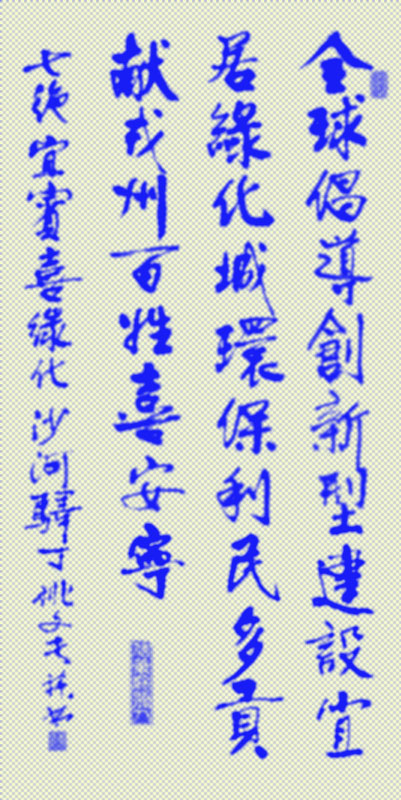 全球倡導創新型建設宜
居綠化城環保利民多貢
献戎州百姓喜安寧
七绝宜賓喜綠化沙河驛丁姚文夫